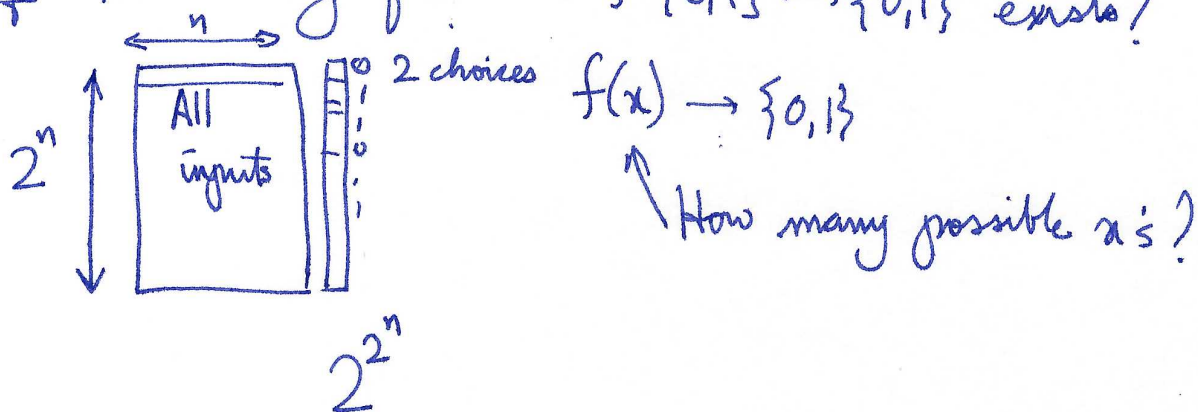 {0,1} → {0,1} exists?
n
2^n
All
inputs
0
1
0
1
1
2 choices
f(x) → {0,1}
How many possible x's?
2^{2^n}